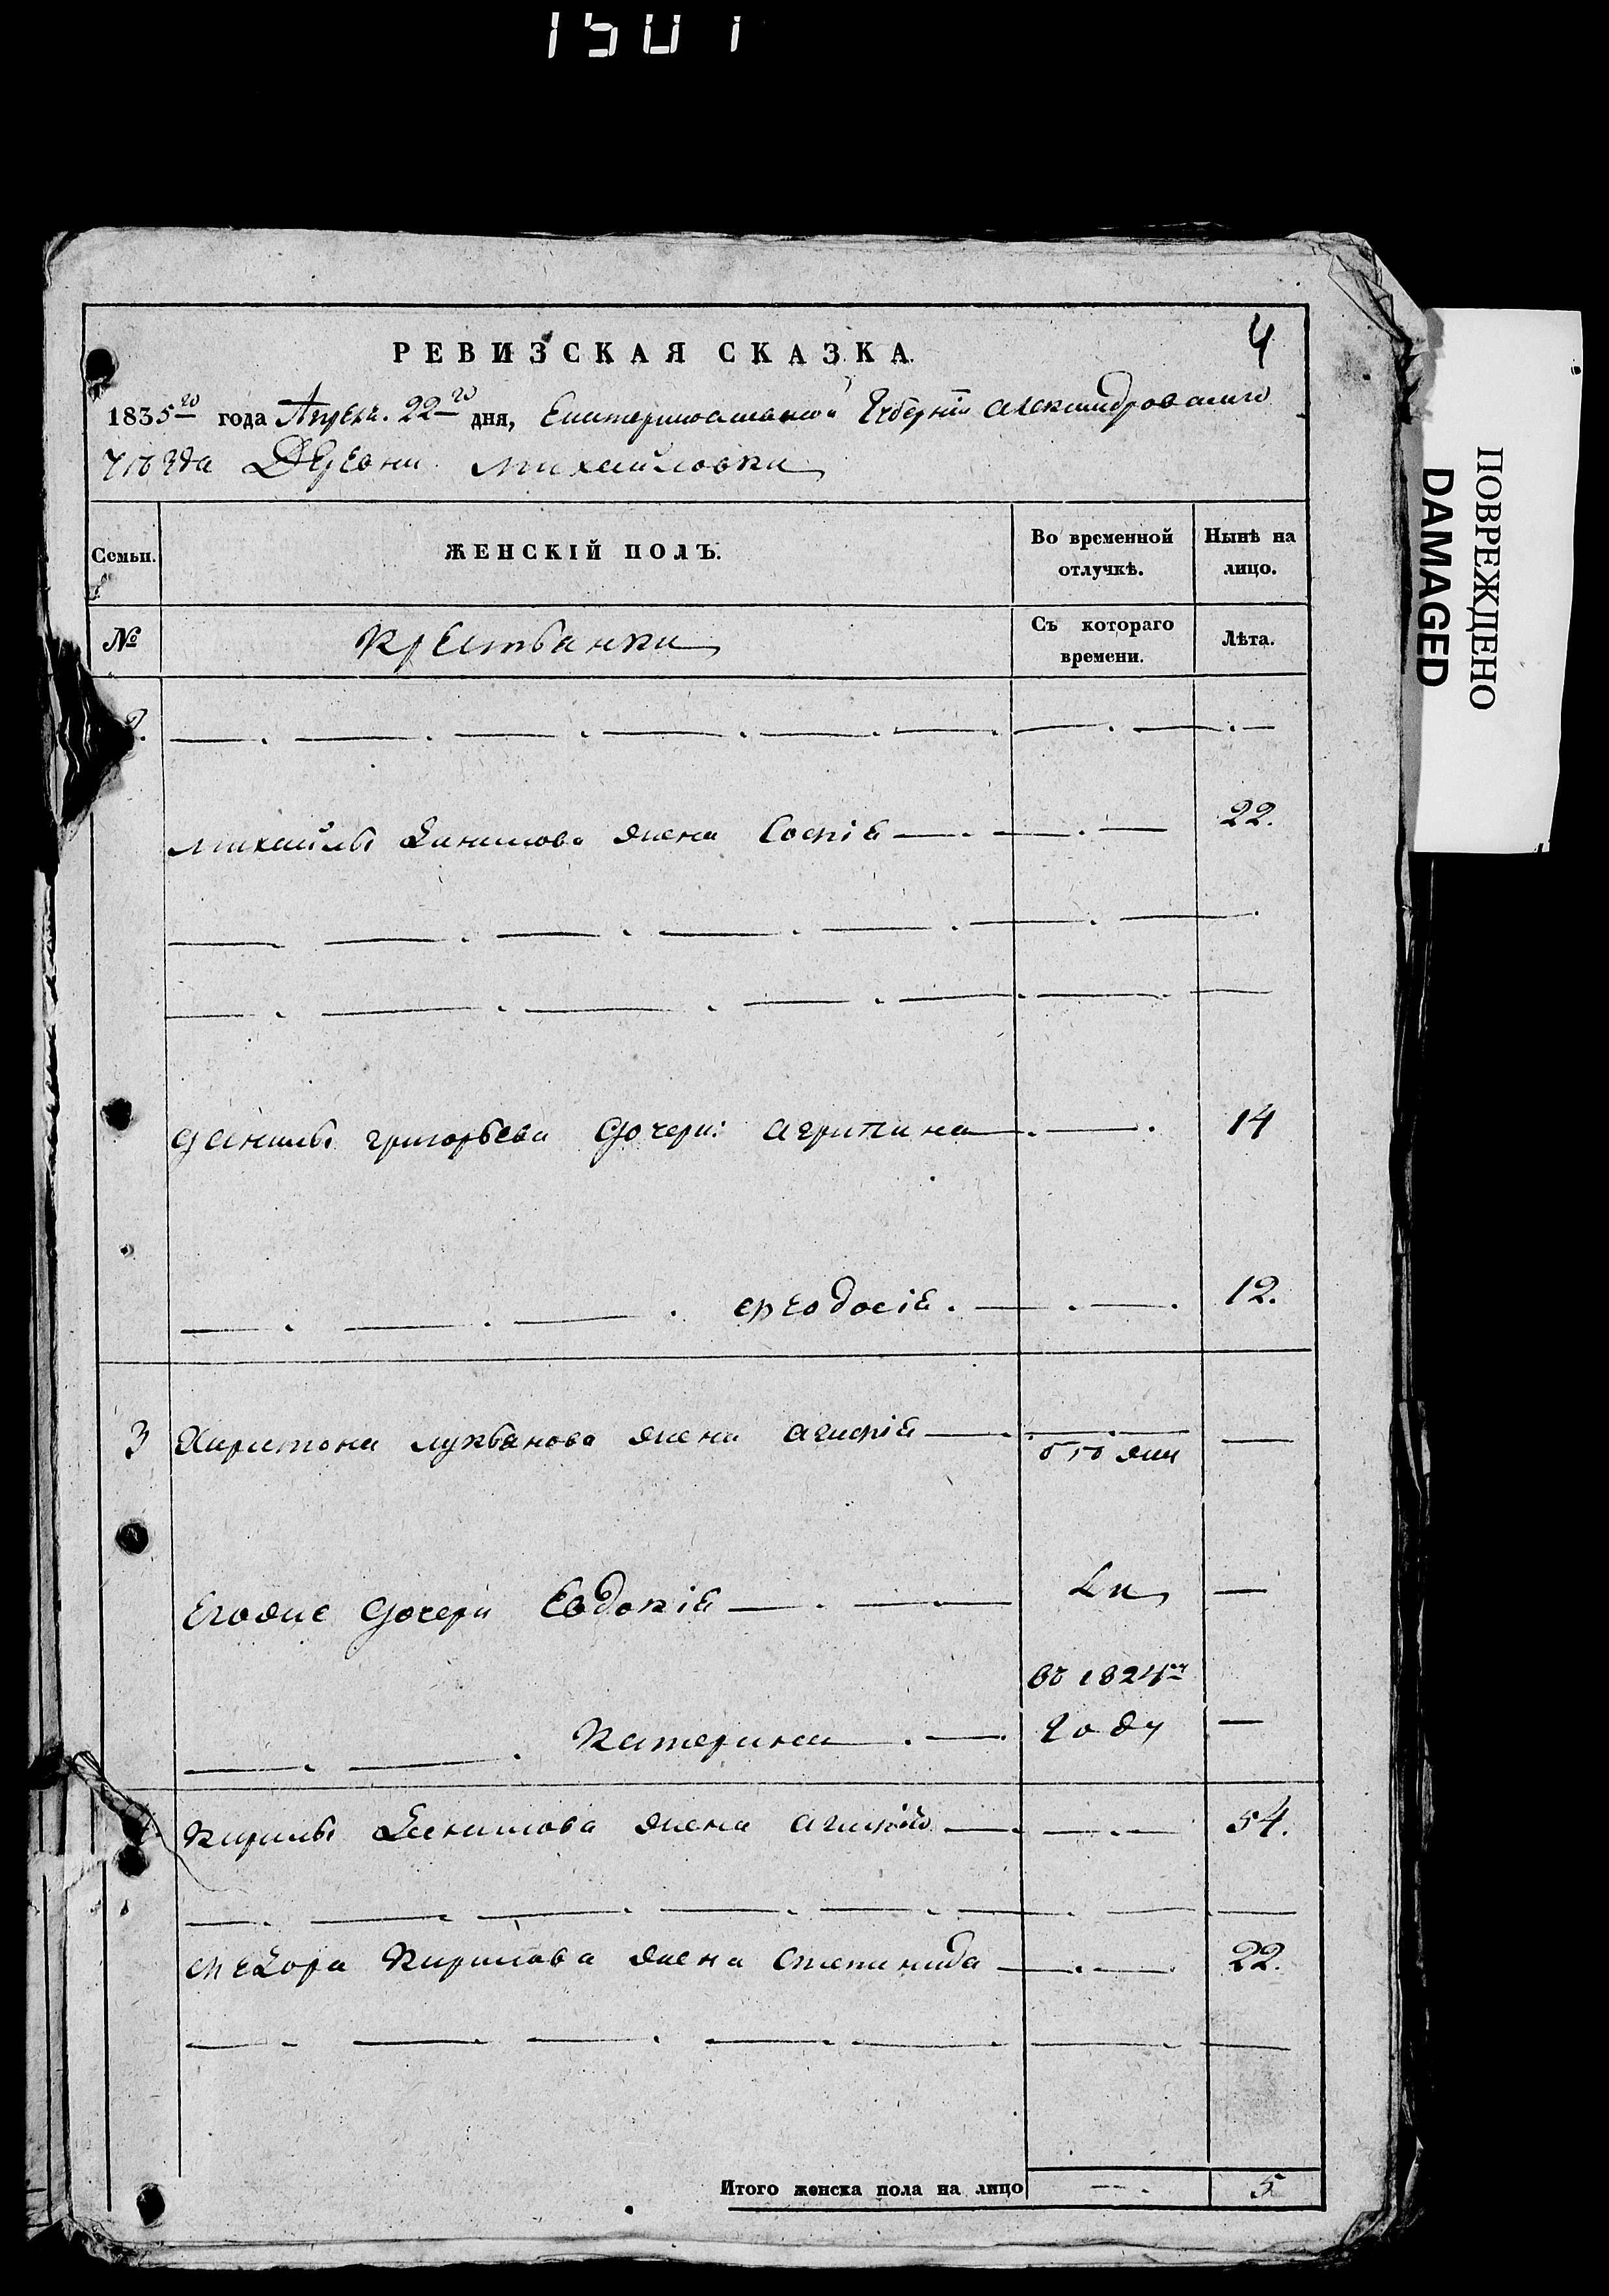 1501
4
РЕВИЗСКАЯ СКАЗКА.
1835го года Апреля 22го дня, Екатеринославской Губернии Александровскаго
уѣзда Деревни Михайловки
Семьи. ЖЕНСКІЙ ПОЛЪ. Во временной отлучкѣ. Нынѣ на лицо.
№ Крестьянки Съ котораго времени. Лѣта.
2.
Михайлы Данилова жена Софія 22.
Данилы Григорьева дочери: Агрипина 14
Феодосія. 12.
3 Харитона Лукьянова жена Агафія
бѣжа
Егоже дочери Евдокія ли
въ 1824м
Катерина году
Кирилы Данилова жена Агафія 54.
Федора Кирилова жена Степанида 22.
Итого женска пола на лицо 5
ПОВРЕЖДЕНО
DAMAGED